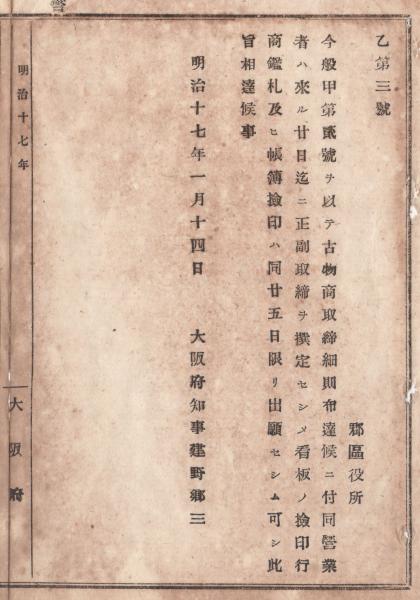 乙第三號
郡區役所
今般甲第貳號ヲ以テ古物商取締細則布達候ニ付同營業
者ハ來ル廿日迄ニ正副取締ヲ撰定セシメ看板ノ撿印行
商鑑札及ヒ帳簿撿印ハ同廿五日限リ出願セシム可シ此
旨相達候事
明治十七年一月十四日 大阪府知事建野鄕三
明治十七年
大阪府